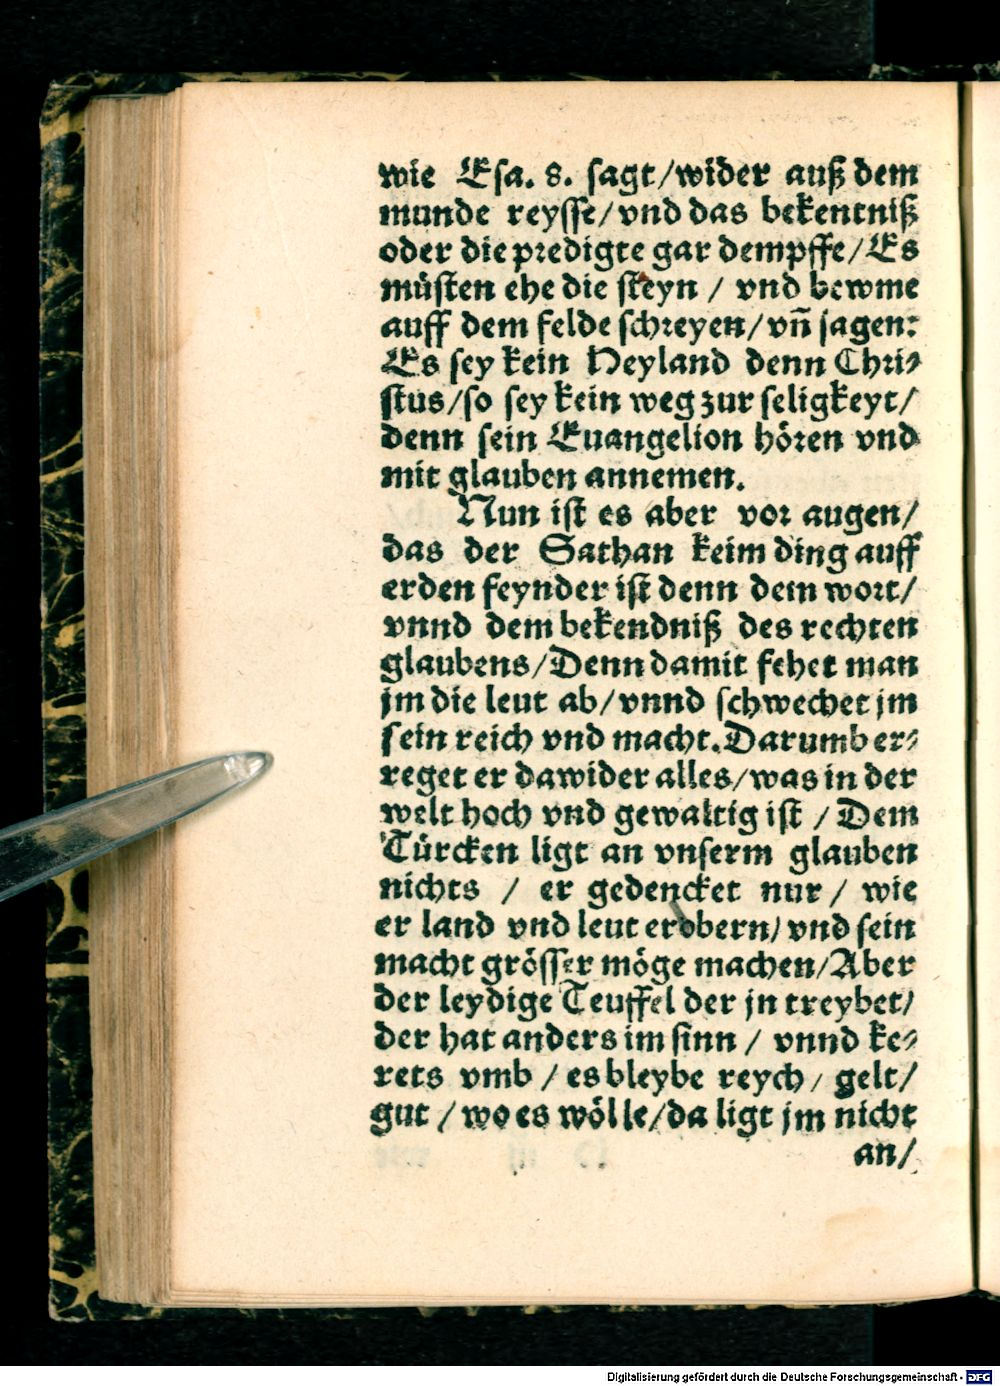 wie Esa. 8. sagt/wider auß dem
munde reysse/vnd das bekentniß
oder die predigte gar dempffe/Es
müsten ehe die steyn / vnd bewme
auff dem felde schreyen/vñ sagen:
Es sey kein Heyland denn Chri⸗
stus/so sey kein weg zur seligkeyt/
denn sein Euangelion hören vnd
mit glauben annemen.
Nun ist es aber vor augen/
das der Sathan keim ding auff
erden feynder ist denn dem wort/
vnnd dem bekendniß des rechten
glaubens/Denn damit fehet man
jm die leut ab/vnnd schwechet jm
sein reich vnd macht.Darumb er⸗
reget er dawider alles/was in der
welt hoch vnd gewaltig ist / Dem
Türcken ligt an vnserm glauben
nichts / er gedencket nur / wie
er land vnd leut erobern/vnd sein
macht grösser möge machen/Aber
der leydige Teuffel der jn treybet/
der hat anders im sinn / vnnd ke⸗
rets vmb / es bleybe reych / gelt/
gut / wo es wölle/da ligt jm nicht
an/
Digitalisierung gefördert durch die Deutsche Forschungsgemeinschaft - DFG